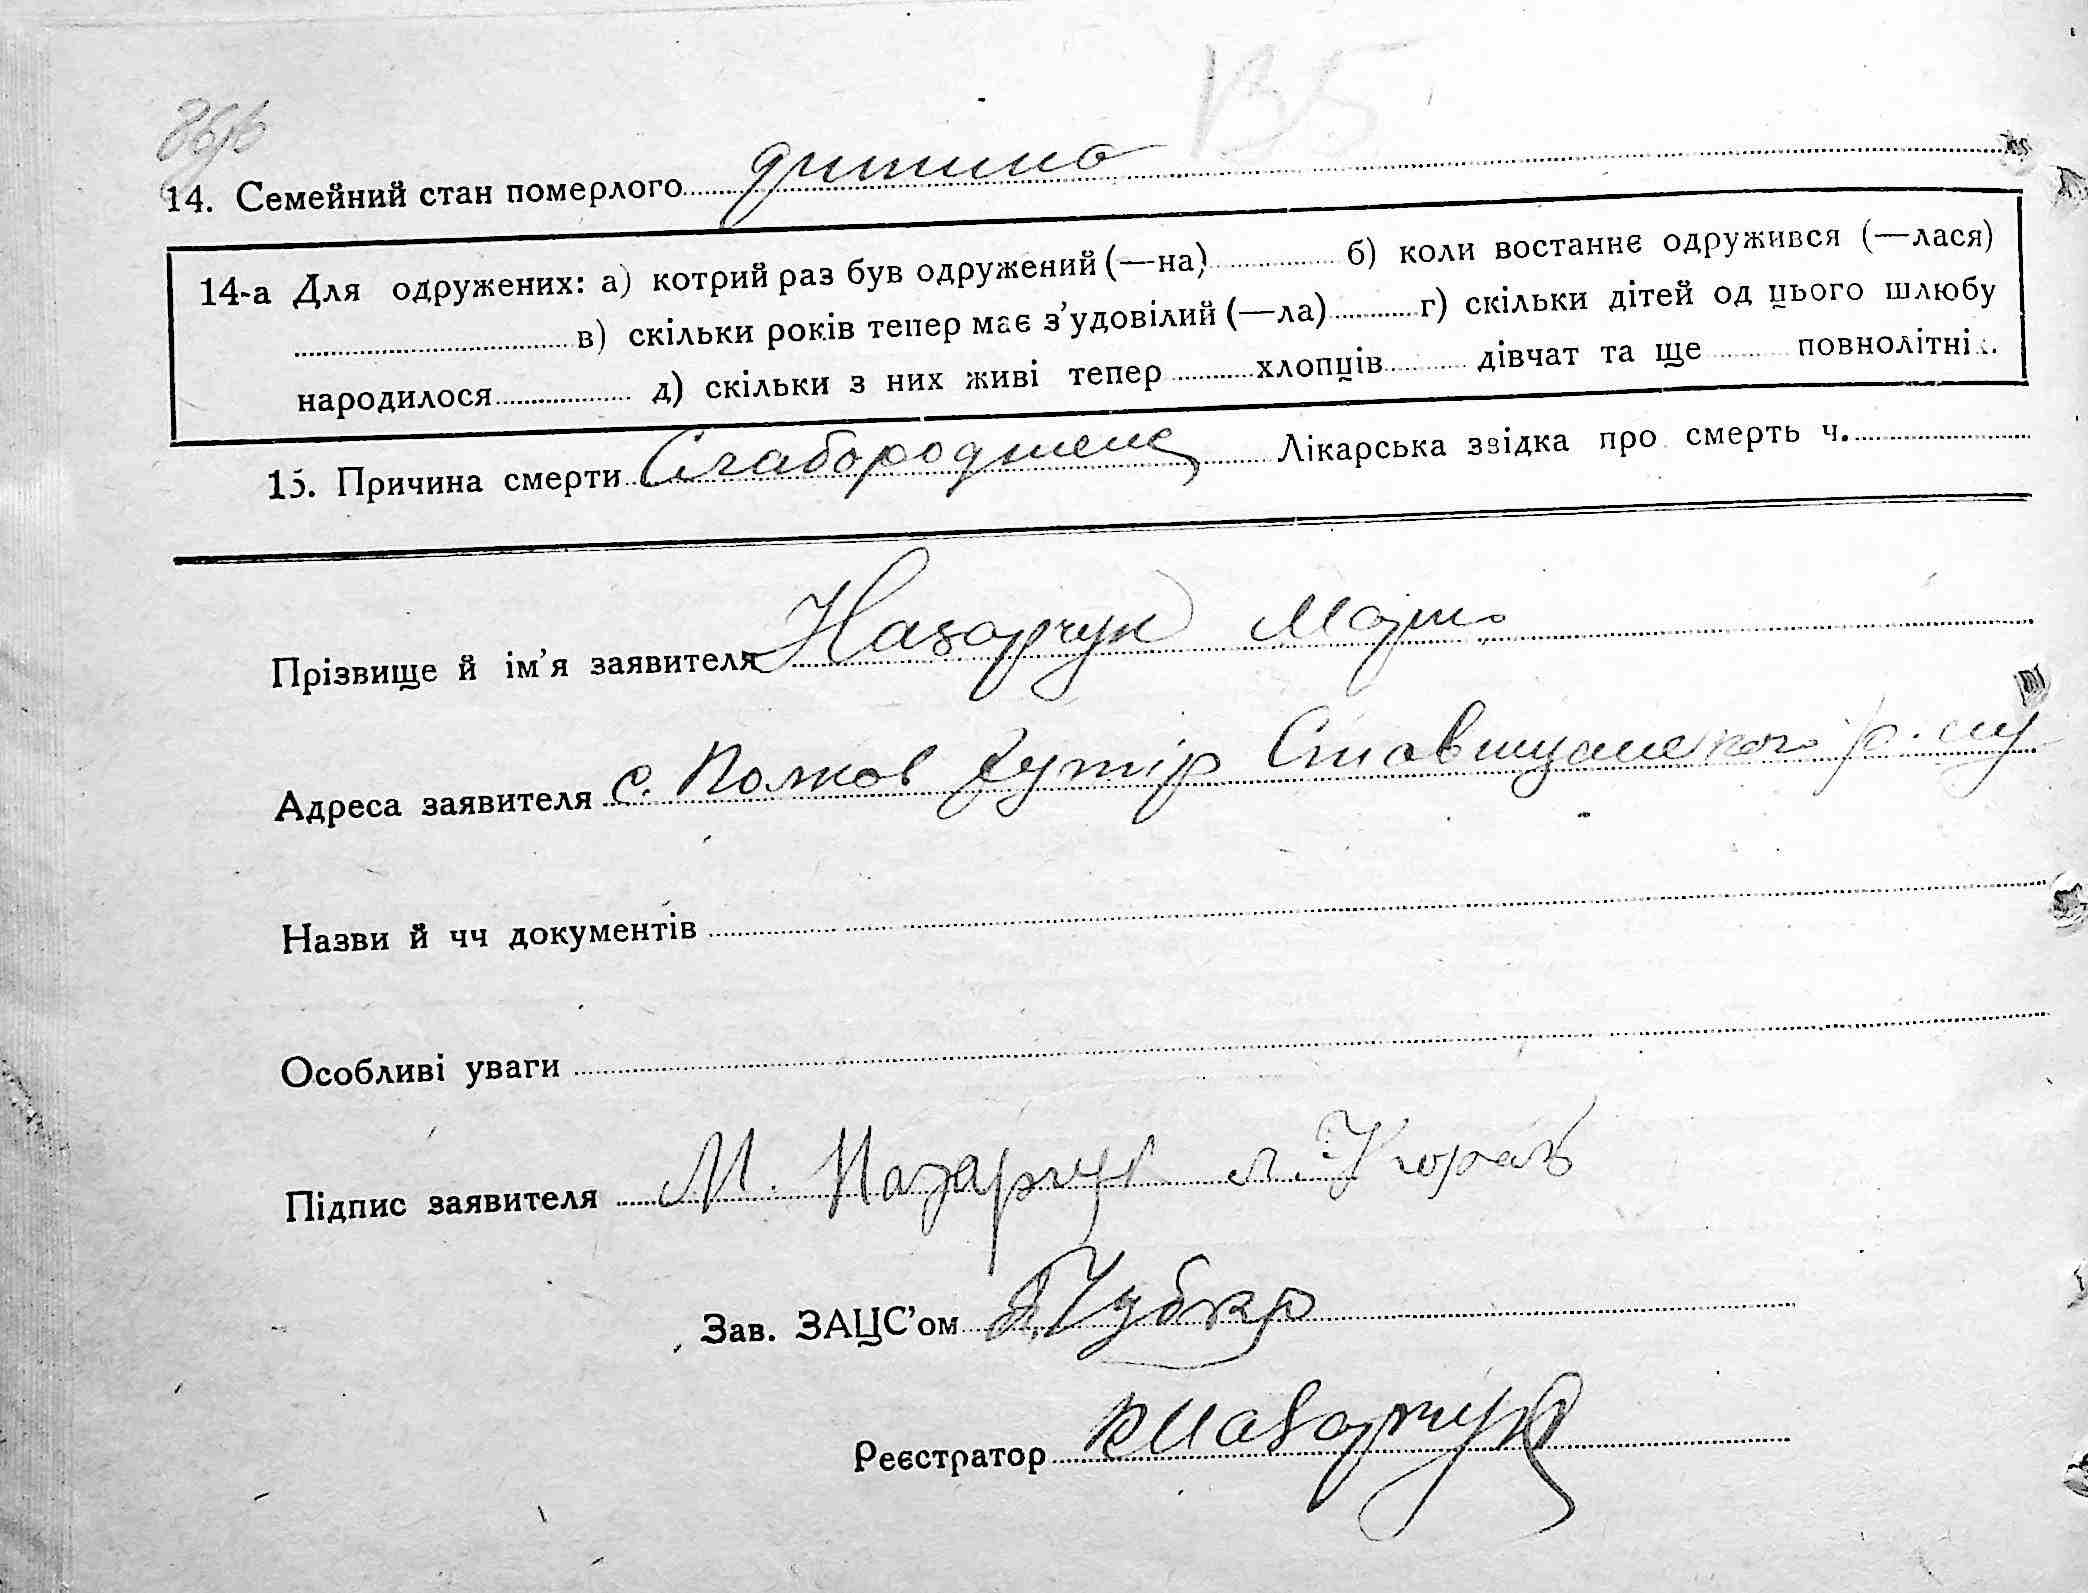 14. Семейний стан померлого дитина
14-а Для одружених: а) котрий раз був одружений (—на) б) коли востаннє одружився (—лася)
в) скільки років тепер має з'удовілий (—ла) г) скільки дітей од цього шлюбу
народилося д) скільки з них живі тепер хлопців дівчат та ще повнолітні..
15. Причина смерти Слабороджене Лікарська звідка про смерть ч.
Прізвище й ім'я заявителя Назарчук Марко
Адреса заявителя с. Полков Хутір Ставищанского р.
Назви й чч документів
Особливі уваги
Підпис заявителя М. Назарчук
Зав. ЗАЦС'ом
Реєстратор Назарчук